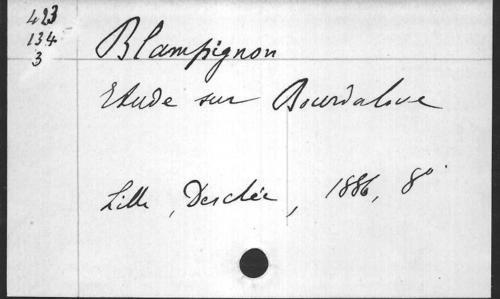 423
134
3
Blampignon
Etude sur Bourdaloue
Lille, Desclée, 1886, 8°